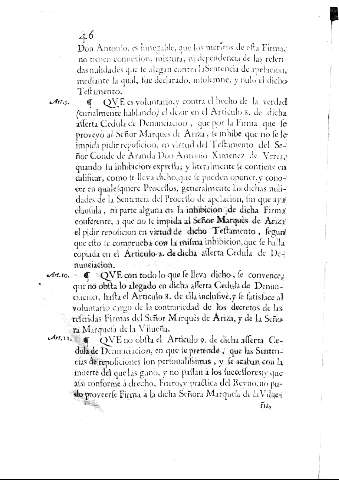 26
Don Antonio, es innegable, que los meritos de esta Firma,
no tienen connexion, mixtura, ni dependencia de las referi-
das nulidades que se alegan contra la Sentencia de apelacion,
mediante la qual, fue declarado, insolemne, y nulo el dicho
Testamento.
Art. 9. ¶ QVE es voluntario, y contra el hecho de la verdad
(formalmente hablando) el dezir en el Articulo 8. de dicha
asserta Cedula de Denunciacion, que por la Firma que se
proveyò al Señor Marques de Ariza, se inhibe que no se le
impida pidir reposicion, en virtud del Testamento del Se-
ñor Conde de Aranda Don Antonio Ximenez de Vrrea,
quando su inhibicion expressa, y literalmente se contiene en
calificar, como se lleva dicho, que se pueden oponer, y cono-
cer en qualesquiere Processos, generalmente las dichas nuli-
dades de la Sentencia del Processo de apelacion, sin que aya
clausula, ni parte alguna en la inhibicion de dicha Firma
conferente, à que no se impida al Señor Marques de Ariza
el pidir reposicion en virtud de dicho Testamento, segun
que esto se comprueba con la misma inhibicion, que se halla
copiada en el Articulo 2. de dicha asserta Cedula de De-
nunciacion.
Art. 10. ¶ QVE con todo lo que se lleva dicho, se convence,
que no obsta lo alegado en dicha asserta Cedula de Denun-
ciacion, hasta el Articulo 8. de ella inclusivè, y se satisface al
voluntario cargo de la contrariedad de los decretos de las
referidas Firmas del Señor Marques de Ariza, y de la Seño-
ra Marquesa de la Vilueña.
Art. 11. ¶ QVE no obsta el Articulo 9. de dicha asserta Ce-
dula de Denunciacion, en que se pretende, que las Senten-
cias de reposiciones son personalissimas, y se acaban con la
muerte del que las gano, y no passan à los successores; y que
assi conforme à drecho, Fuero, y practica del Reyno no pu-
do proveerse Firma à la dicha Señora Marquesa de la Vilue-
ña,